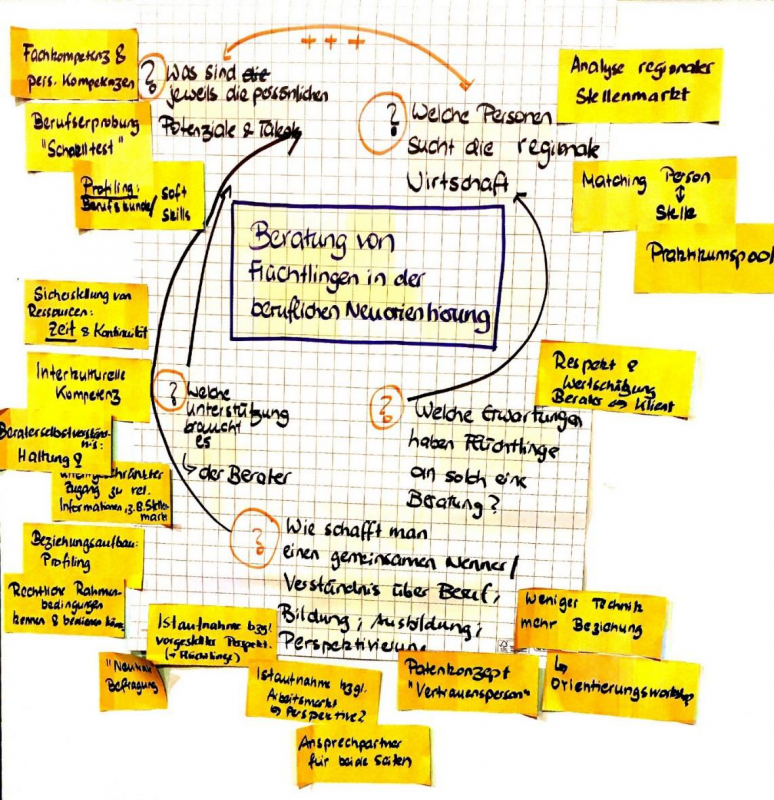 + + +
Fachkompetenz &
pers. Kompetenzen
Berufserprobung
"Schnelltest"
Profiling:
Berufskunde/ soft
skills
? Was sind die
jeweils die persönlichen
Potenziale & Talente
? Welche Personen
sucht die regionale
Wirtschaft
Analyse regionaler
Stellenmarkt
Matching Person
↕
Stelle
Praktikumspool
Beratung von
Flüchtlingen in der
beruflichen Neuorientierung
Sicherstellung von
Ressourcen:
Zeit & Kontinuität
Interkulturelle
Kompetenz
Beraterselbstverständ-
nis:
Haltung &
Zugang zu rel.
Informationen, z.B. Stellen-
markt
Beziehungsaufbau:
Profiling
Rechtliche Rahmen-
bedingungen
kennen & bedienen
? Welche
Unterstützung
braucht
es
↳ der Berater
? Welche Erwartungen
haben Flüchtlinge
an solch eine
Beratung?
Respekt &
Wertschätzung
Berater ⇔ Klient
? Wie schafft man
einen gemeinsamen Nenner/
Verständnis über Beruf,
Bildung, Ausbildung,
Perspektivierung
Istaufnahme bzgl.
vorgestellter Perspekt.
(→ Flüchtlinge)
"Neutrale"
Befragung
Istaufnahme bzgl.
Arbeitsmarkt
↳ Perspektive?
Ansprechpartner
für beide Seiten
Patenkonzept
"Vertrauensperson"
Weniger Technik
mehr Beziehung
↳
Orientierungsworkshop